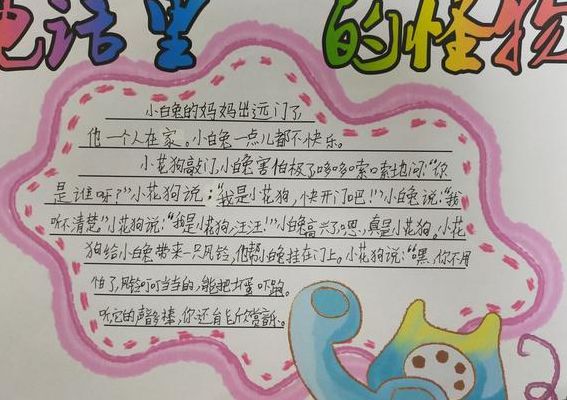 电话里的怪物
小白兔的妈妈出远门了,
他一个人在家。小白兔一点儿都不快乐。
小花狗敲门,小白兔害怕极了哆哆索索地问:“你
是谁呀?”小花狗说:“我是小花狗,快开门吧!”小白兔说:“我
听不清楚”小花狗说:“我是小花狗,汪汪!”小白兔高兴了嗯,真是小花狗,小花
狗给小白兔带来一只风铃,他帮小白兔挂在门上。小花狗说:“嘿,你不用
怕了,风铃叮叮当当的,能把坏蛋吓跑。
听它的声音多棒,你还有欣赏音乐。